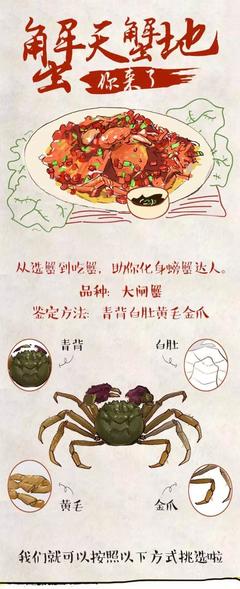 蟹天蟹地
你来了
从选蟹到吃蟹，助你化身螃蟹达人。
品种：大闸蟹
鉴定方法：青背白肚黄毛金爪
青背
白肚
黄毛
金爪
我们就可以按照以下方式挑选啦